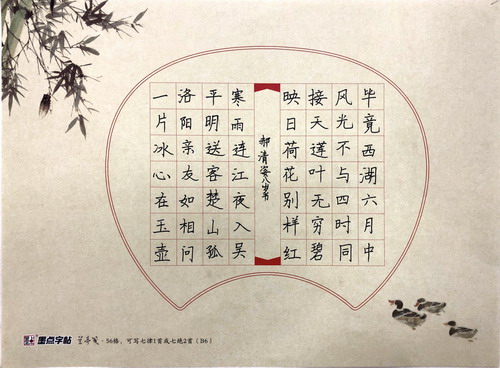 毕竟西湖六月中
风光不与四时同
接天莲叶无穷碧
映日荷花别样红
郝清姿八岁书
寒雨连江夜入吴
平明送客楚山孤
洛阳亲友如相问
一片冰心在玉壶
墨点字帖 兰亭笺·56格，可写七律1首或七绝2首（B6）